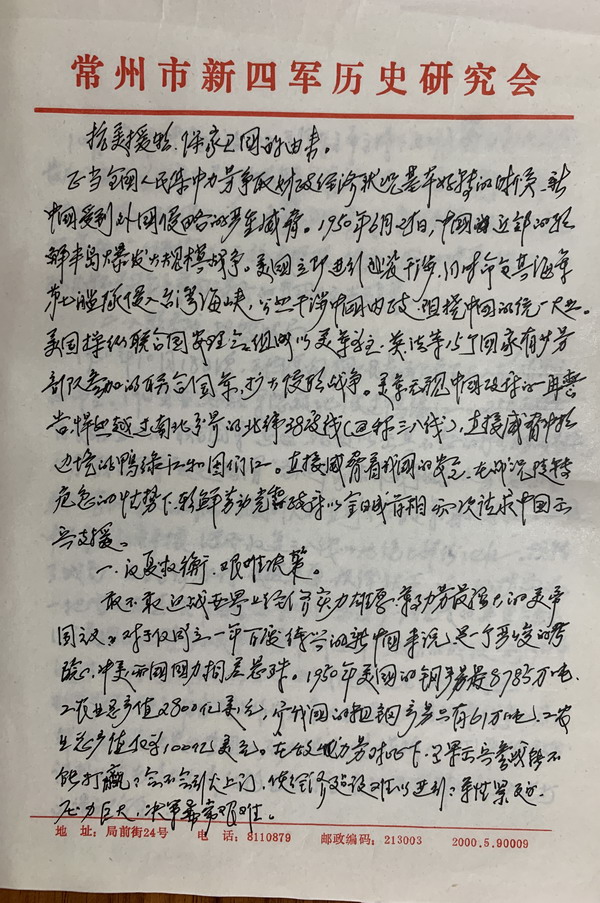 常州市新四军历史研究会
抗美援朝、保家卫国的由来。
正当全国人民集中力量争取财政经济状况基本好转的时候，新
中国受到外国侵略的严重威胁。1950年6月25日，中国的近邻的朝
鲜半岛爆发大规模战争。美国立即进行武装干涉，同时命令其海军
第七舰队侵入台湾海峡，公然干涉中国内政，阻挠中国的统一大业。
美国操纵联合国安理会，组成以美军为主，英法等15个国家有少量
部队参加的联合国军，扩大侵朝战争。美军无视中国政府的一再警
告，悍然越过南北分界的北纬38度线(也称三八线)，直接威胁中朝
边境的鸭绿江和图们江。直接威胁着我国的安全，在此情况
危急的情势下，朝鲜劳动党和政府以金日成首相 次请求中国出
兵支援。
一、反复权衡，艰难决策。
敢不敢迎战世界上经济实力雄厚、军力量最强大的美帝
国主义。对于仅成立一年百废待兴的新中国来说，是一个严峻的考
验。中美两国国力相差悬殊。1950年美国的钢产量是8785万吨，
工农业总产值2800亿美元，而我国的粗钢产量只有61万吨，工农
业总产值仅有100亿美元。在敌我力量对比下，出兵参战能不
能打赢？会不会引火上门，使经济建设难以进行？
压力巨大，决策异常艰难。
地 址：局前街24号 电 话：8110879 邮政编码：213003 2000.5.90009